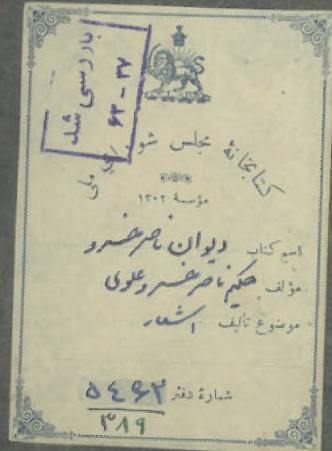 بازرسی شد
۶۳ - ۳۷
کتابخانهٔ مجلس شورای ملی
مؤسسهٔ ۱۳۰۲
اسم کتاب دیوان ناصر خسرو
مؤلف حکیم ناصر خسرو علوی
موضوع تألیف اشعار
شمارهٔ دفتر ۵۴۶۹۲
۳۸۹